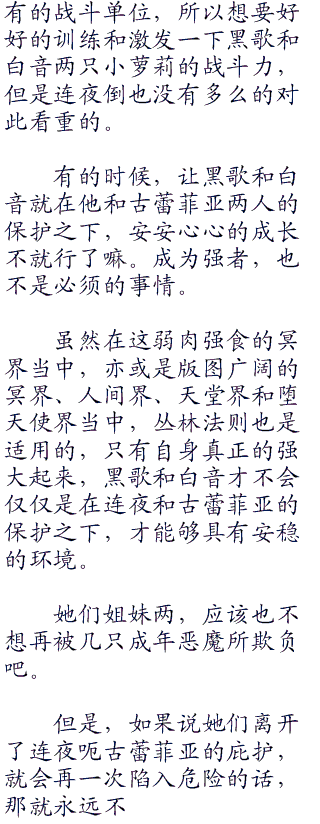 有的战斗单位，所以想要好
好的训练和激发一下黑歌和
白音两只小萝莉的战斗力，
但是连夜倒也没有多么的对
此看重的。
有的时候，让黑歌和白
音就在他和古蕾菲亚两人的
保护之下，安安心心的成长
不就行了嘛。成为强者，也
不是必须的事情。
虽然在这弱肉强食的冥
界当中，亦或是版图广阔的
冥界、人间界、天堂界和堕
天使界当中，丛林法则也是
适用的，只有自身真正的强
大起来，黑歌和白音才不会
仅仅是在连夜和古蕾菲亚的
保护之下，才能够具有安稳
的环境。
她们姐妹两，应该也不
想再被几只成年恶魔所欺负
吧。
但是，如果说她们离开
了连夜呃古蕾菲亚的庇护，
就会再一次陷入危险的话，
那就永远不